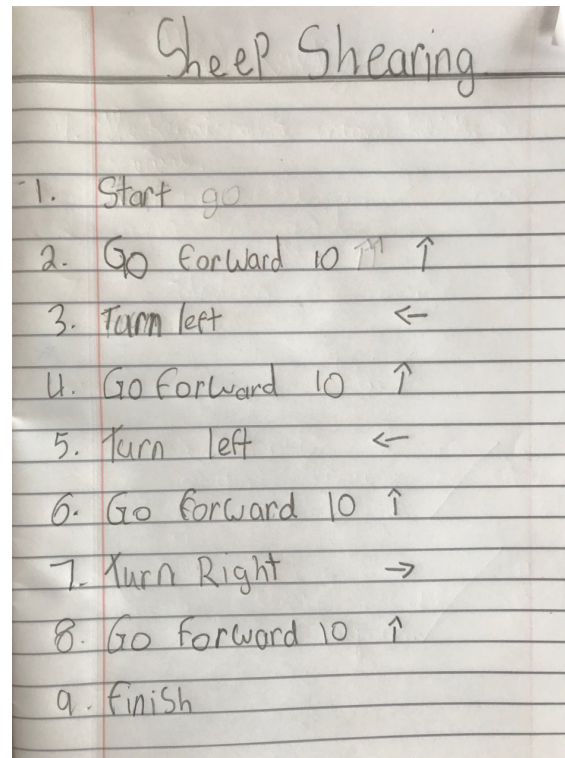 Sheep Shearing
1. Start go
2. Go forward 10 ↑↑ ↑
3. Turn left ←
4. Go forward 10 ↑
5. Turn left ←
6. Go forward 10 ↑
7. Turn Right →
8. Go forward 10 ↑
9. finish